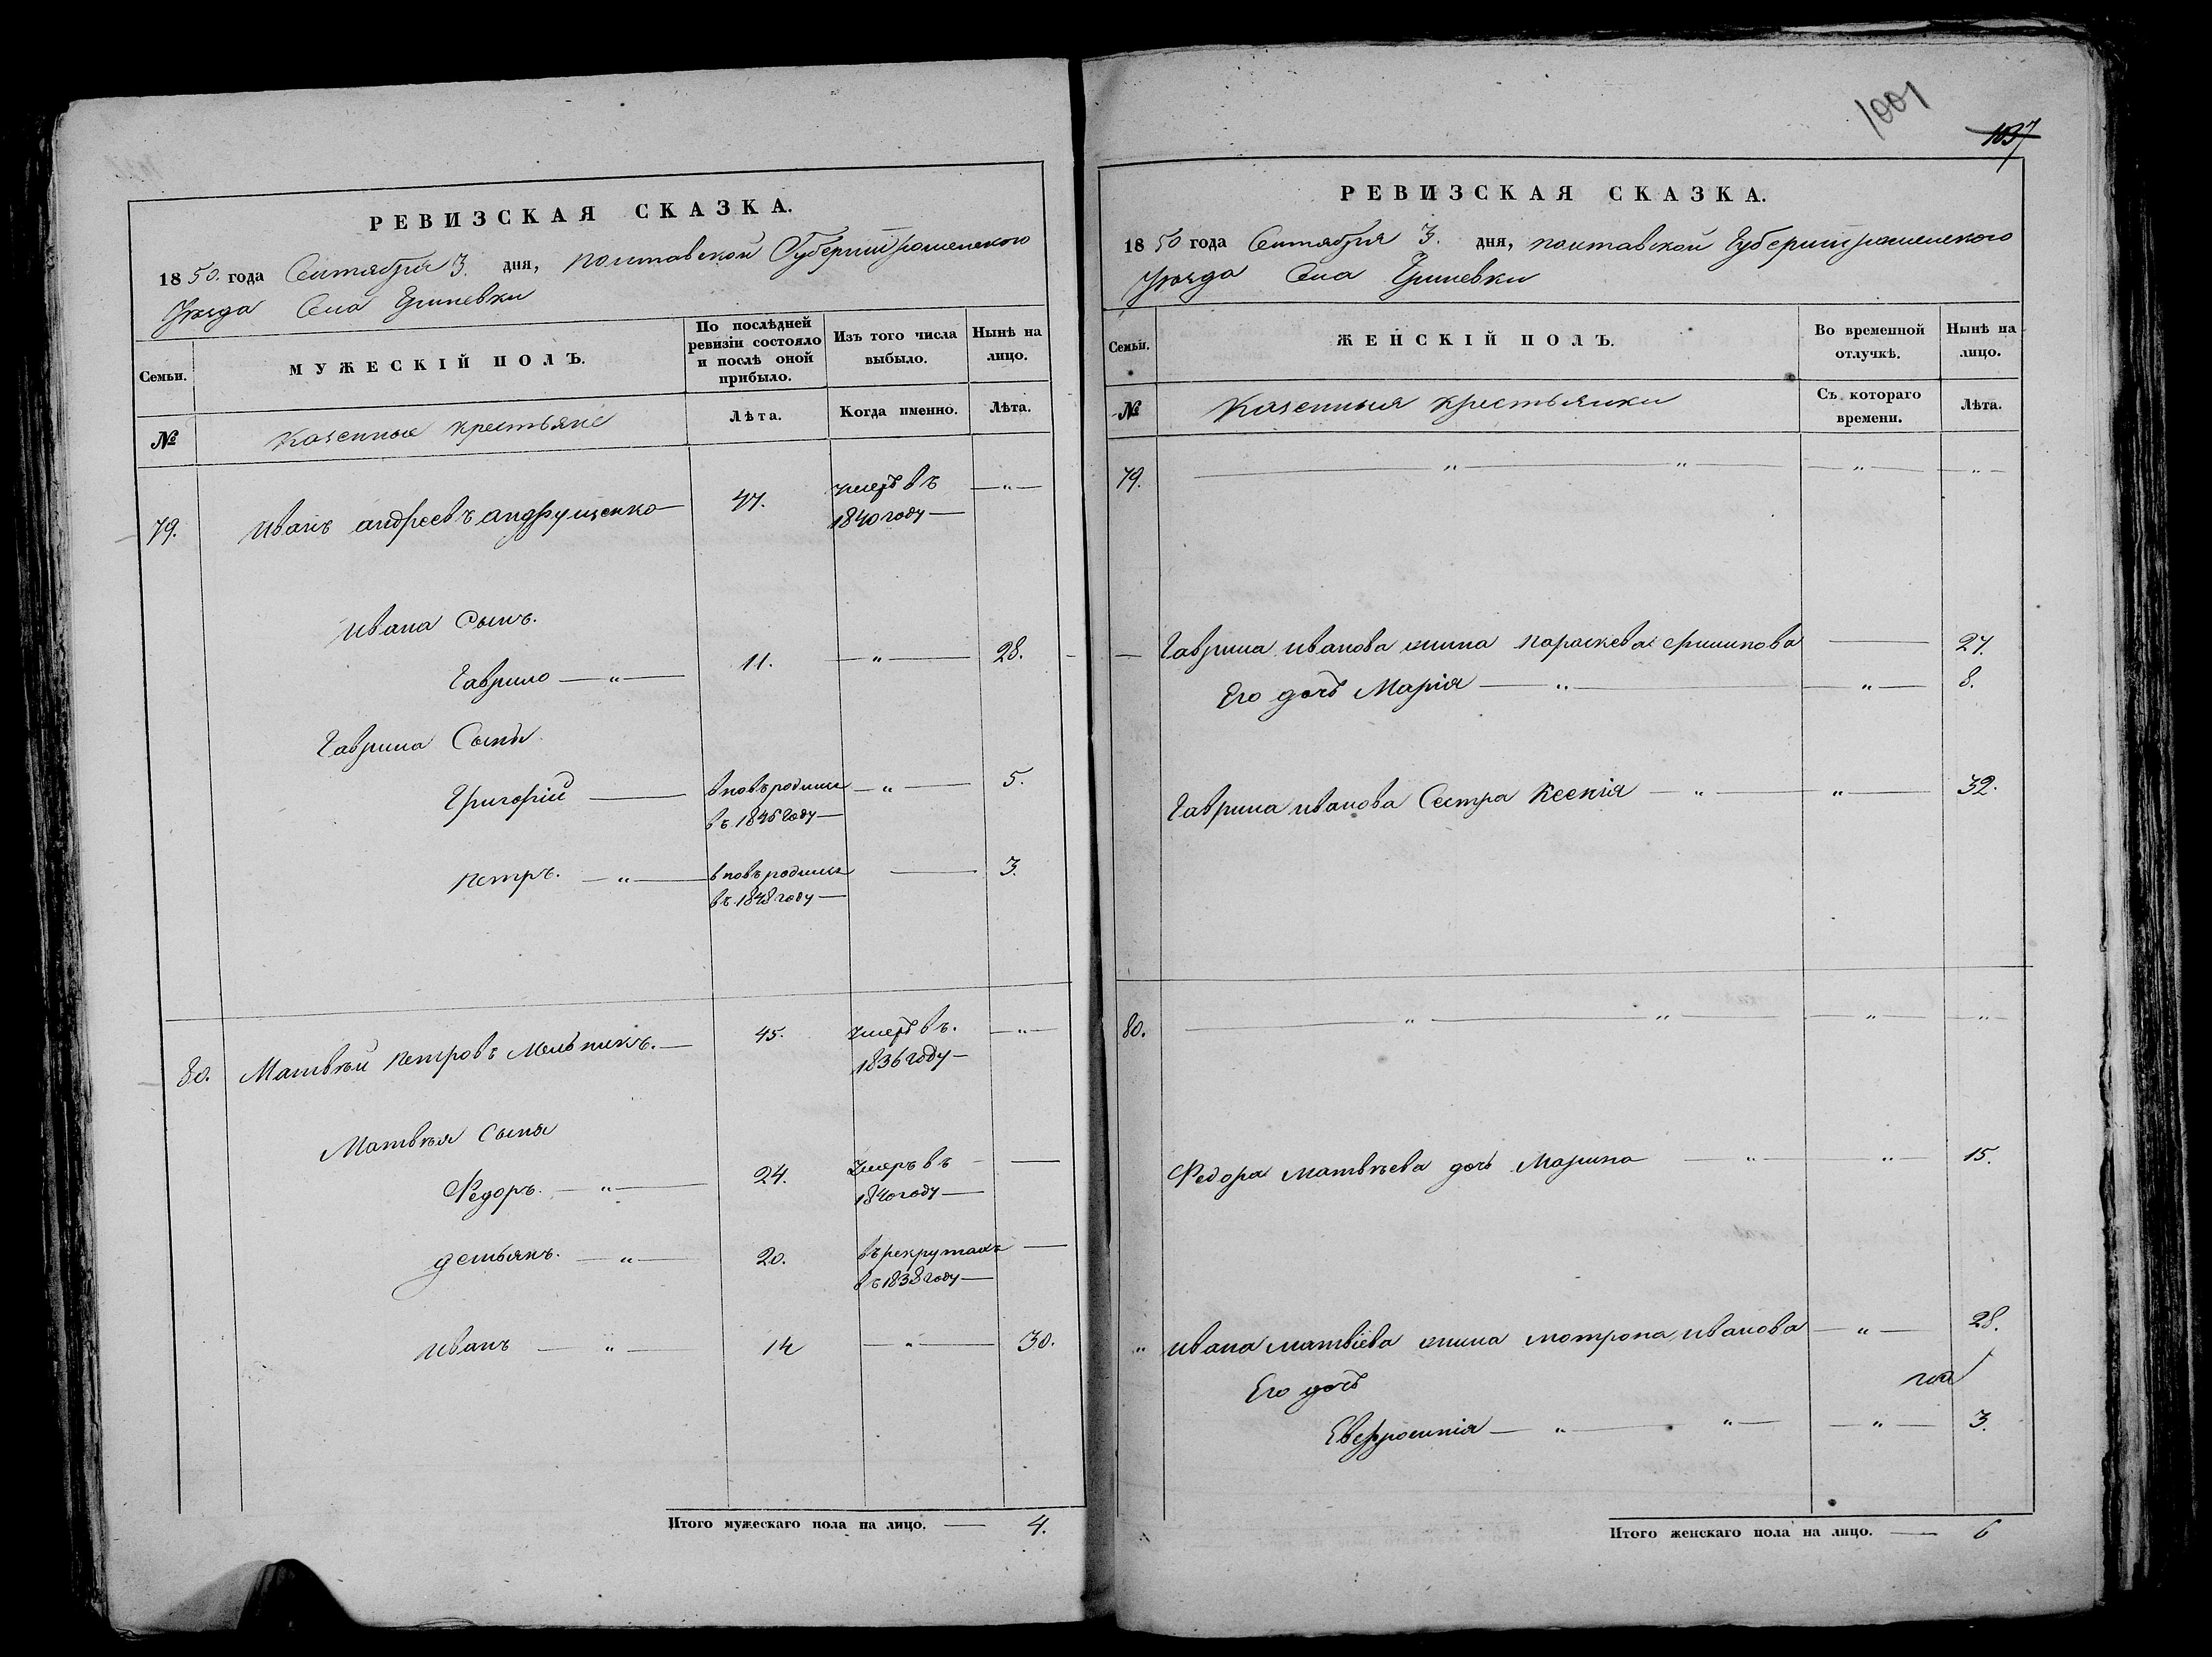 РЕВИЗСКАЯ СКАЗКА.
1850. года Сентября 3. дня, Полтавской Губернии роменского
Уезда Села Гриневки
Семьи.
МУЖЕСКІЙ ПОЛЪ.
По послѣдней ревизіи состояло и послѣ оной прибыло.
Изъ того числа выбыло.
Нынѣ на лицо.
№
Казенные крестьяне
Лѣта.
Когда именно.
Лѣта.
79. Иванъ андреевъ андрущенко 47. умеръ въ
1840 году
Ивана Сынъ.
Гаврило — „ — 11. — „ — 28.
Гаврила Сыны
Григорій — вновь родился — „ — 5.
въ 1845 году —
петръ. — „ — вновь родился — 3.
въ 1848 году —
80. Матвѣй петровъ Мельникъ. — 45. умеръ въ.
1836 году —
Матвѣя Сыны
Федоръ. — „ — 24. умеръ въ
1840 году —
демьянъ. — „ — 20. въ рекрутахъ
въ 1838 году —
Иванъ — „ — 14 — „ — 30.
Итого мужескаго пола на лицо. — 4.
1001
1037
РЕВИЗСКАЯ СКАЗКА.
1850 года Сентября 3. дня, полтавской Губернии роменского
Уезда Села Гриневки
Семьи.
ЖЕНСКІЙ ПОЛЪ.
Во временной отлучкѣ.
Нынѣ на лицо.
№
Казенныя крестьянки
Съ котораго времени.
Лѣта.
79. — „ — „ — — „ — — „ —
Гаврила иванова жина параскева филипова — 27.
Его дочь Марія — „ — — „ — 8.
Гаврила иванова Сестра Ксенія — „ — — „ — 32.
80. — „ — „ — — „ — — „ —
Федора матвѣева дочь Марина — „ — — „ — 15.
„ ивана матвіева жина мотрона иванова — „ — 28.
Его дочь
Евфросинія — „ — „ — — „ — 3.
Итого женскаго пола на лицо. — 6